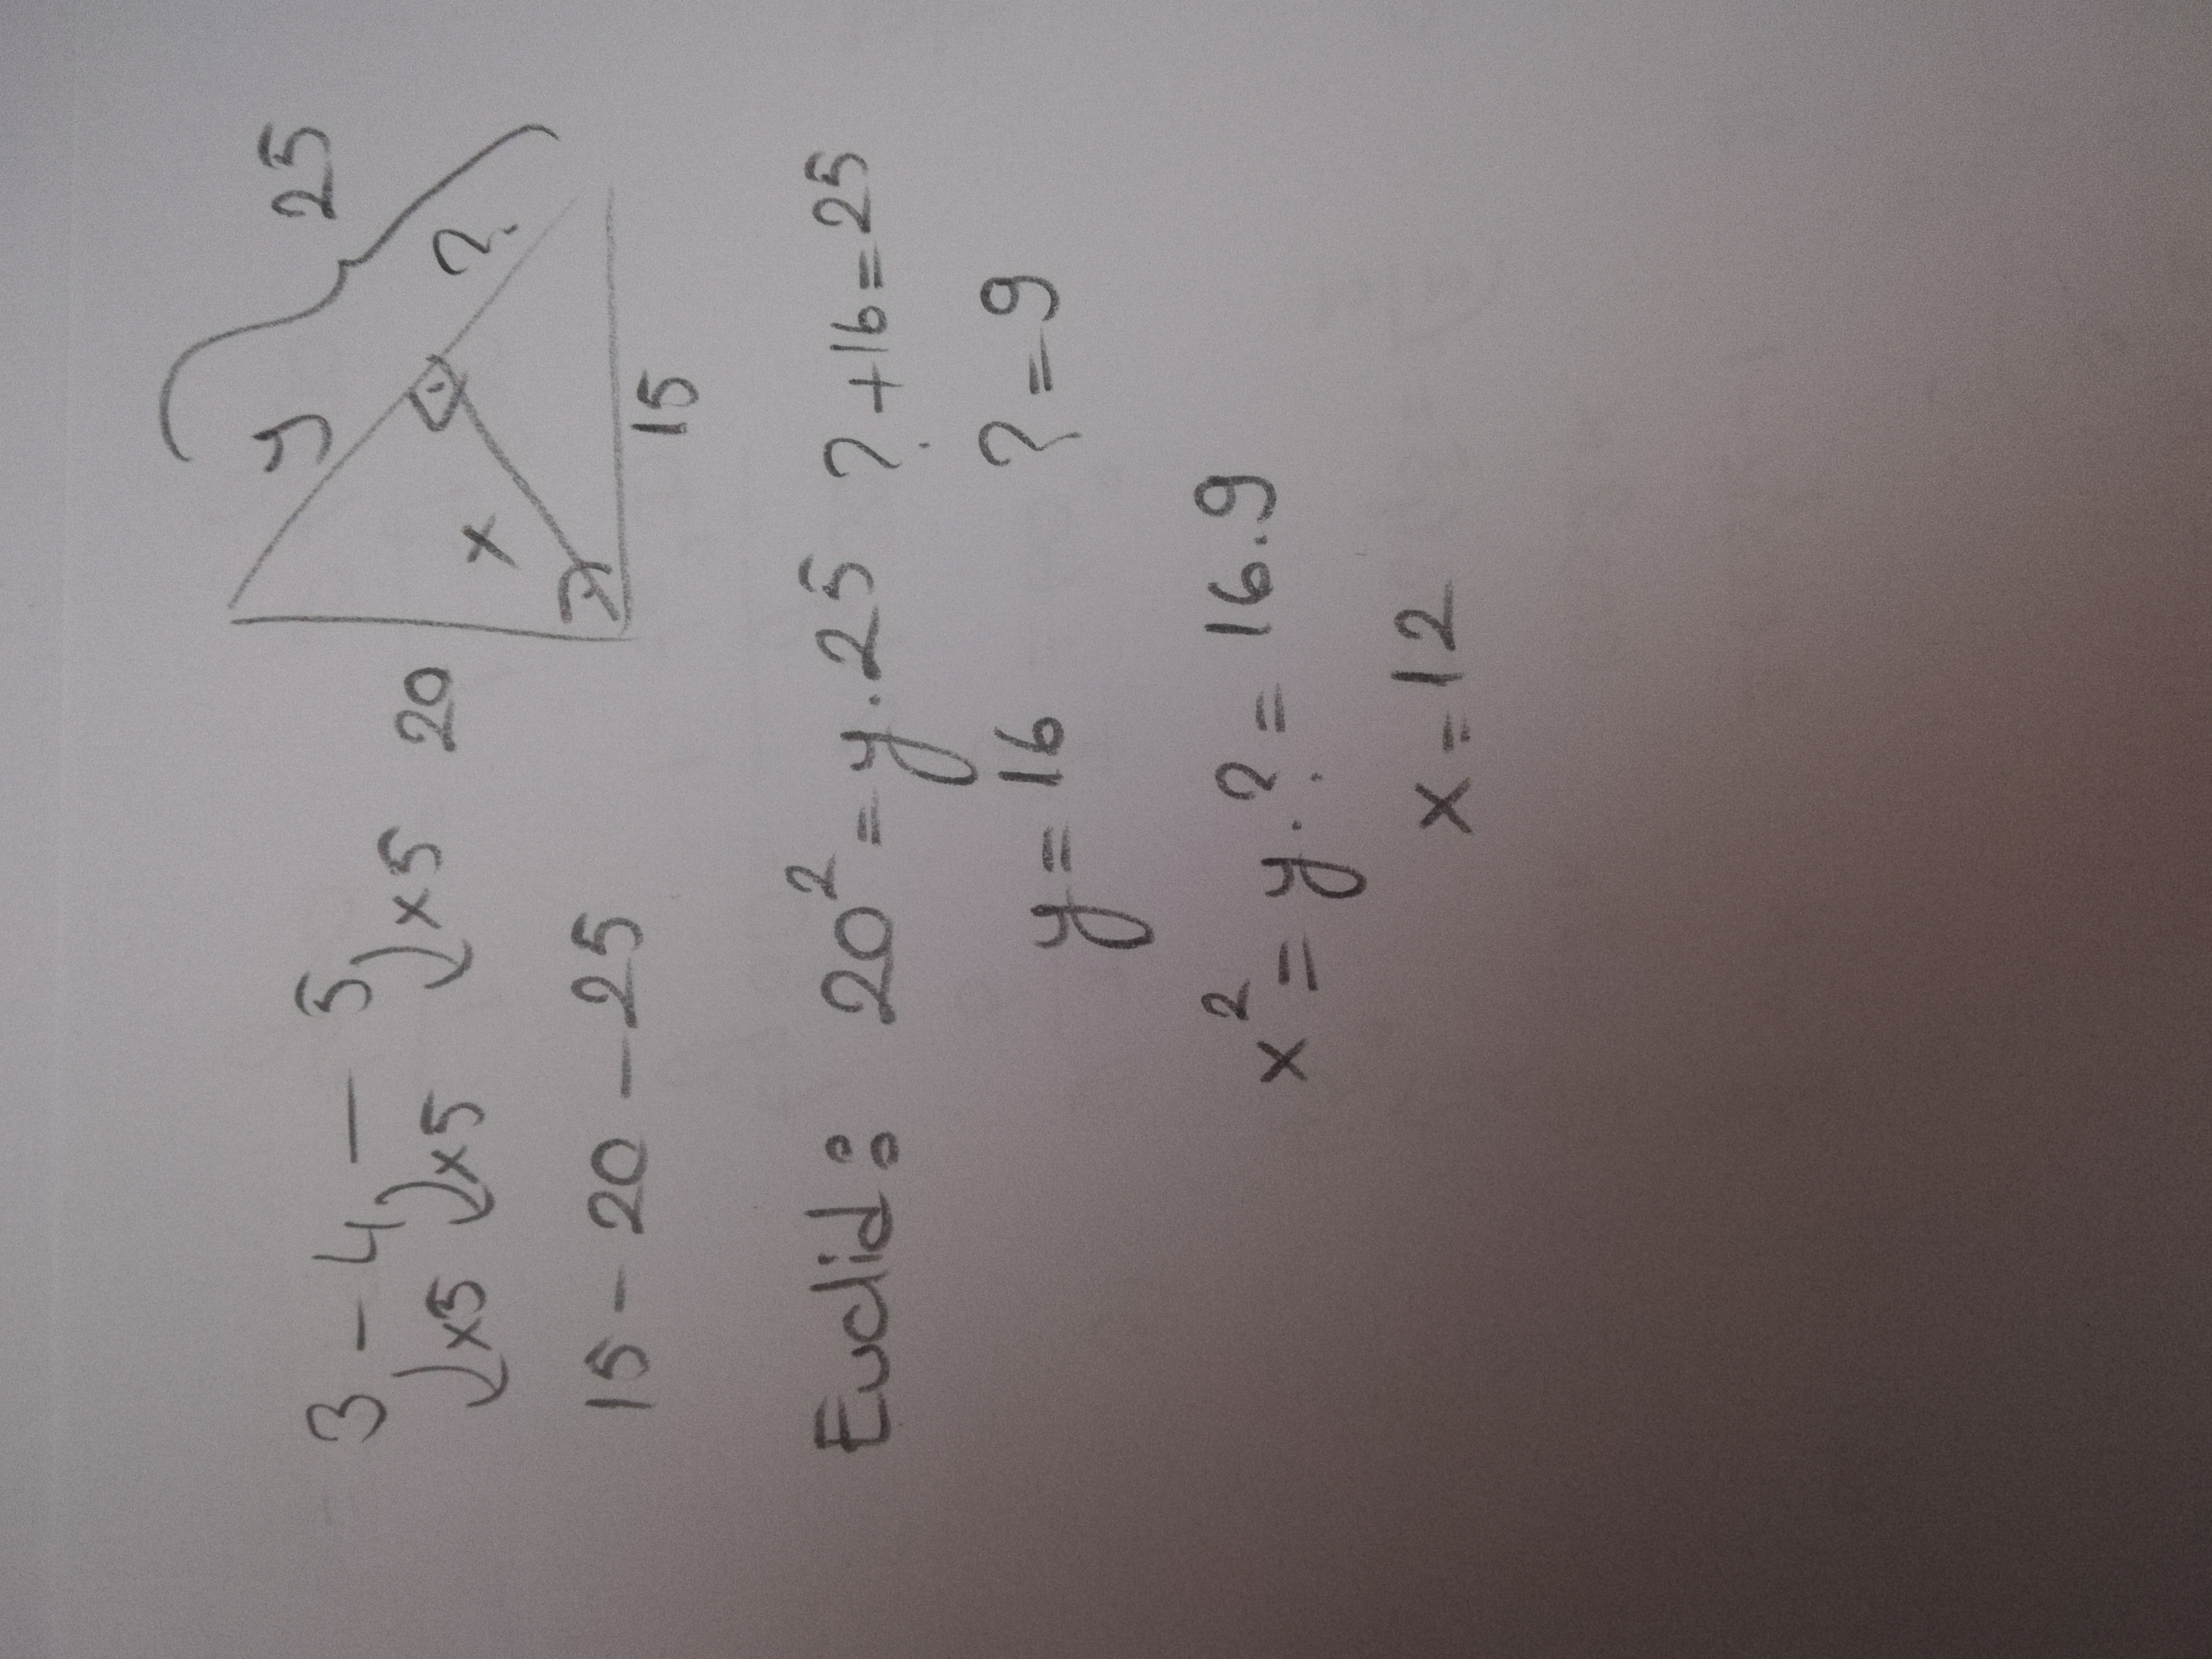 3 - 4 - 5
)x5 )x5 )x5
15 - 20 - 25
25
y
?
x
20
15
Euclid: 20² = y.25 ? + 16 = 25
y = 16 ? = 9
x² = y.? = 16.9
x = 12